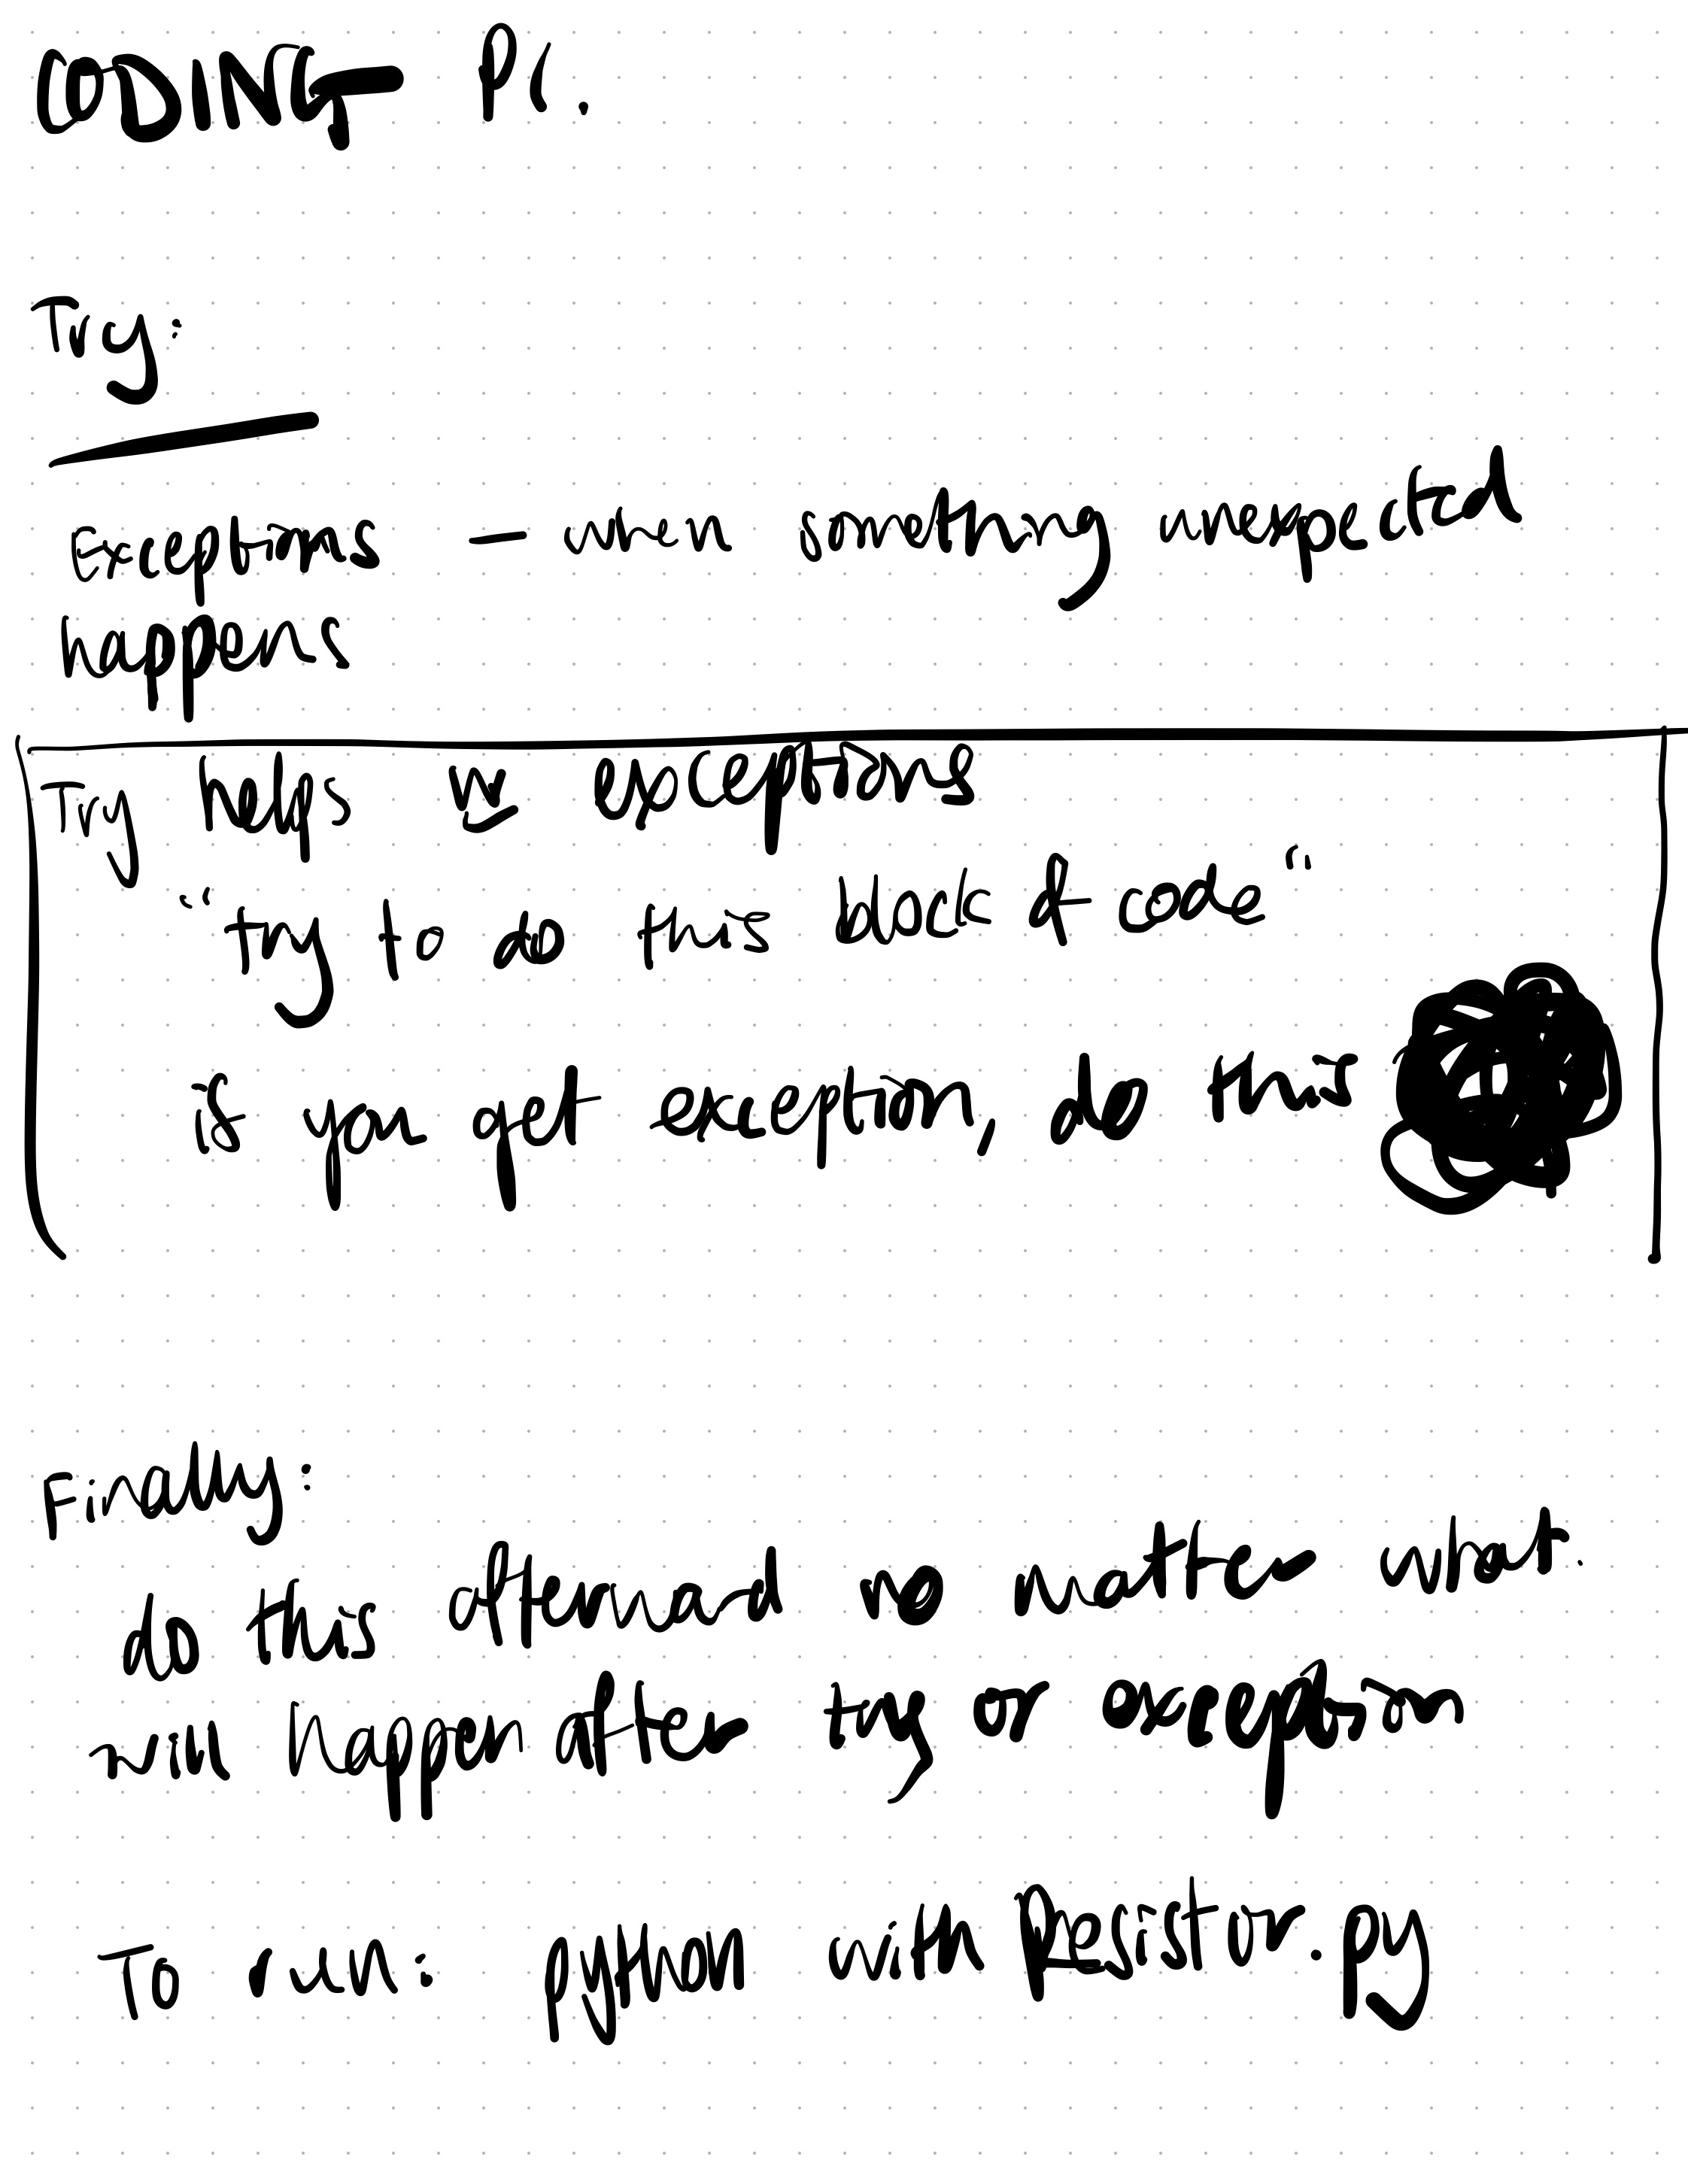 CODING P1.
Try:
Exceptions — when something unexpected
happens
Try helps w exceptions
"try to do this block of code"
if you get exception, do this
Finally:
do this afterward no matter what.
will happen after try or exception
To run: python withResistor.py